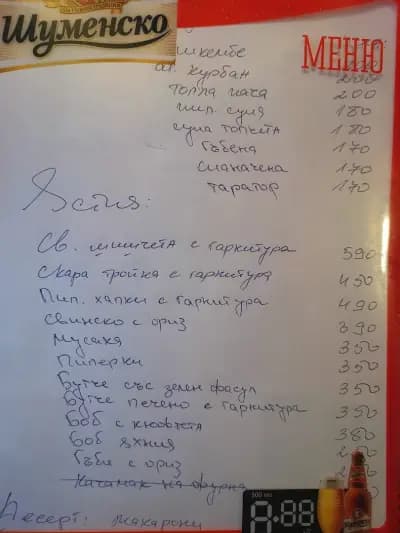 Шуменско
МЕНЮ
шкембе
аг. курбан
топла пача 200
пил. супа 180
супа топчета 180
гъбена 170
спаначена 170
таратор 170
Ястия:
Св. мишчета с гарнитура 590
Скара тройка с гарнитура 450
Пил. хапки с гарнитура 490
свинско с ориз 390
мусака 350
Пиперки 350
Бутче със зелен фасул 350
Бутче печено с гарнитура 350
Боб с кюфтета 380
Боб яхния
Гъби с ориз
Качамак на фурна
Десерт: макарони
500 ml
А-88